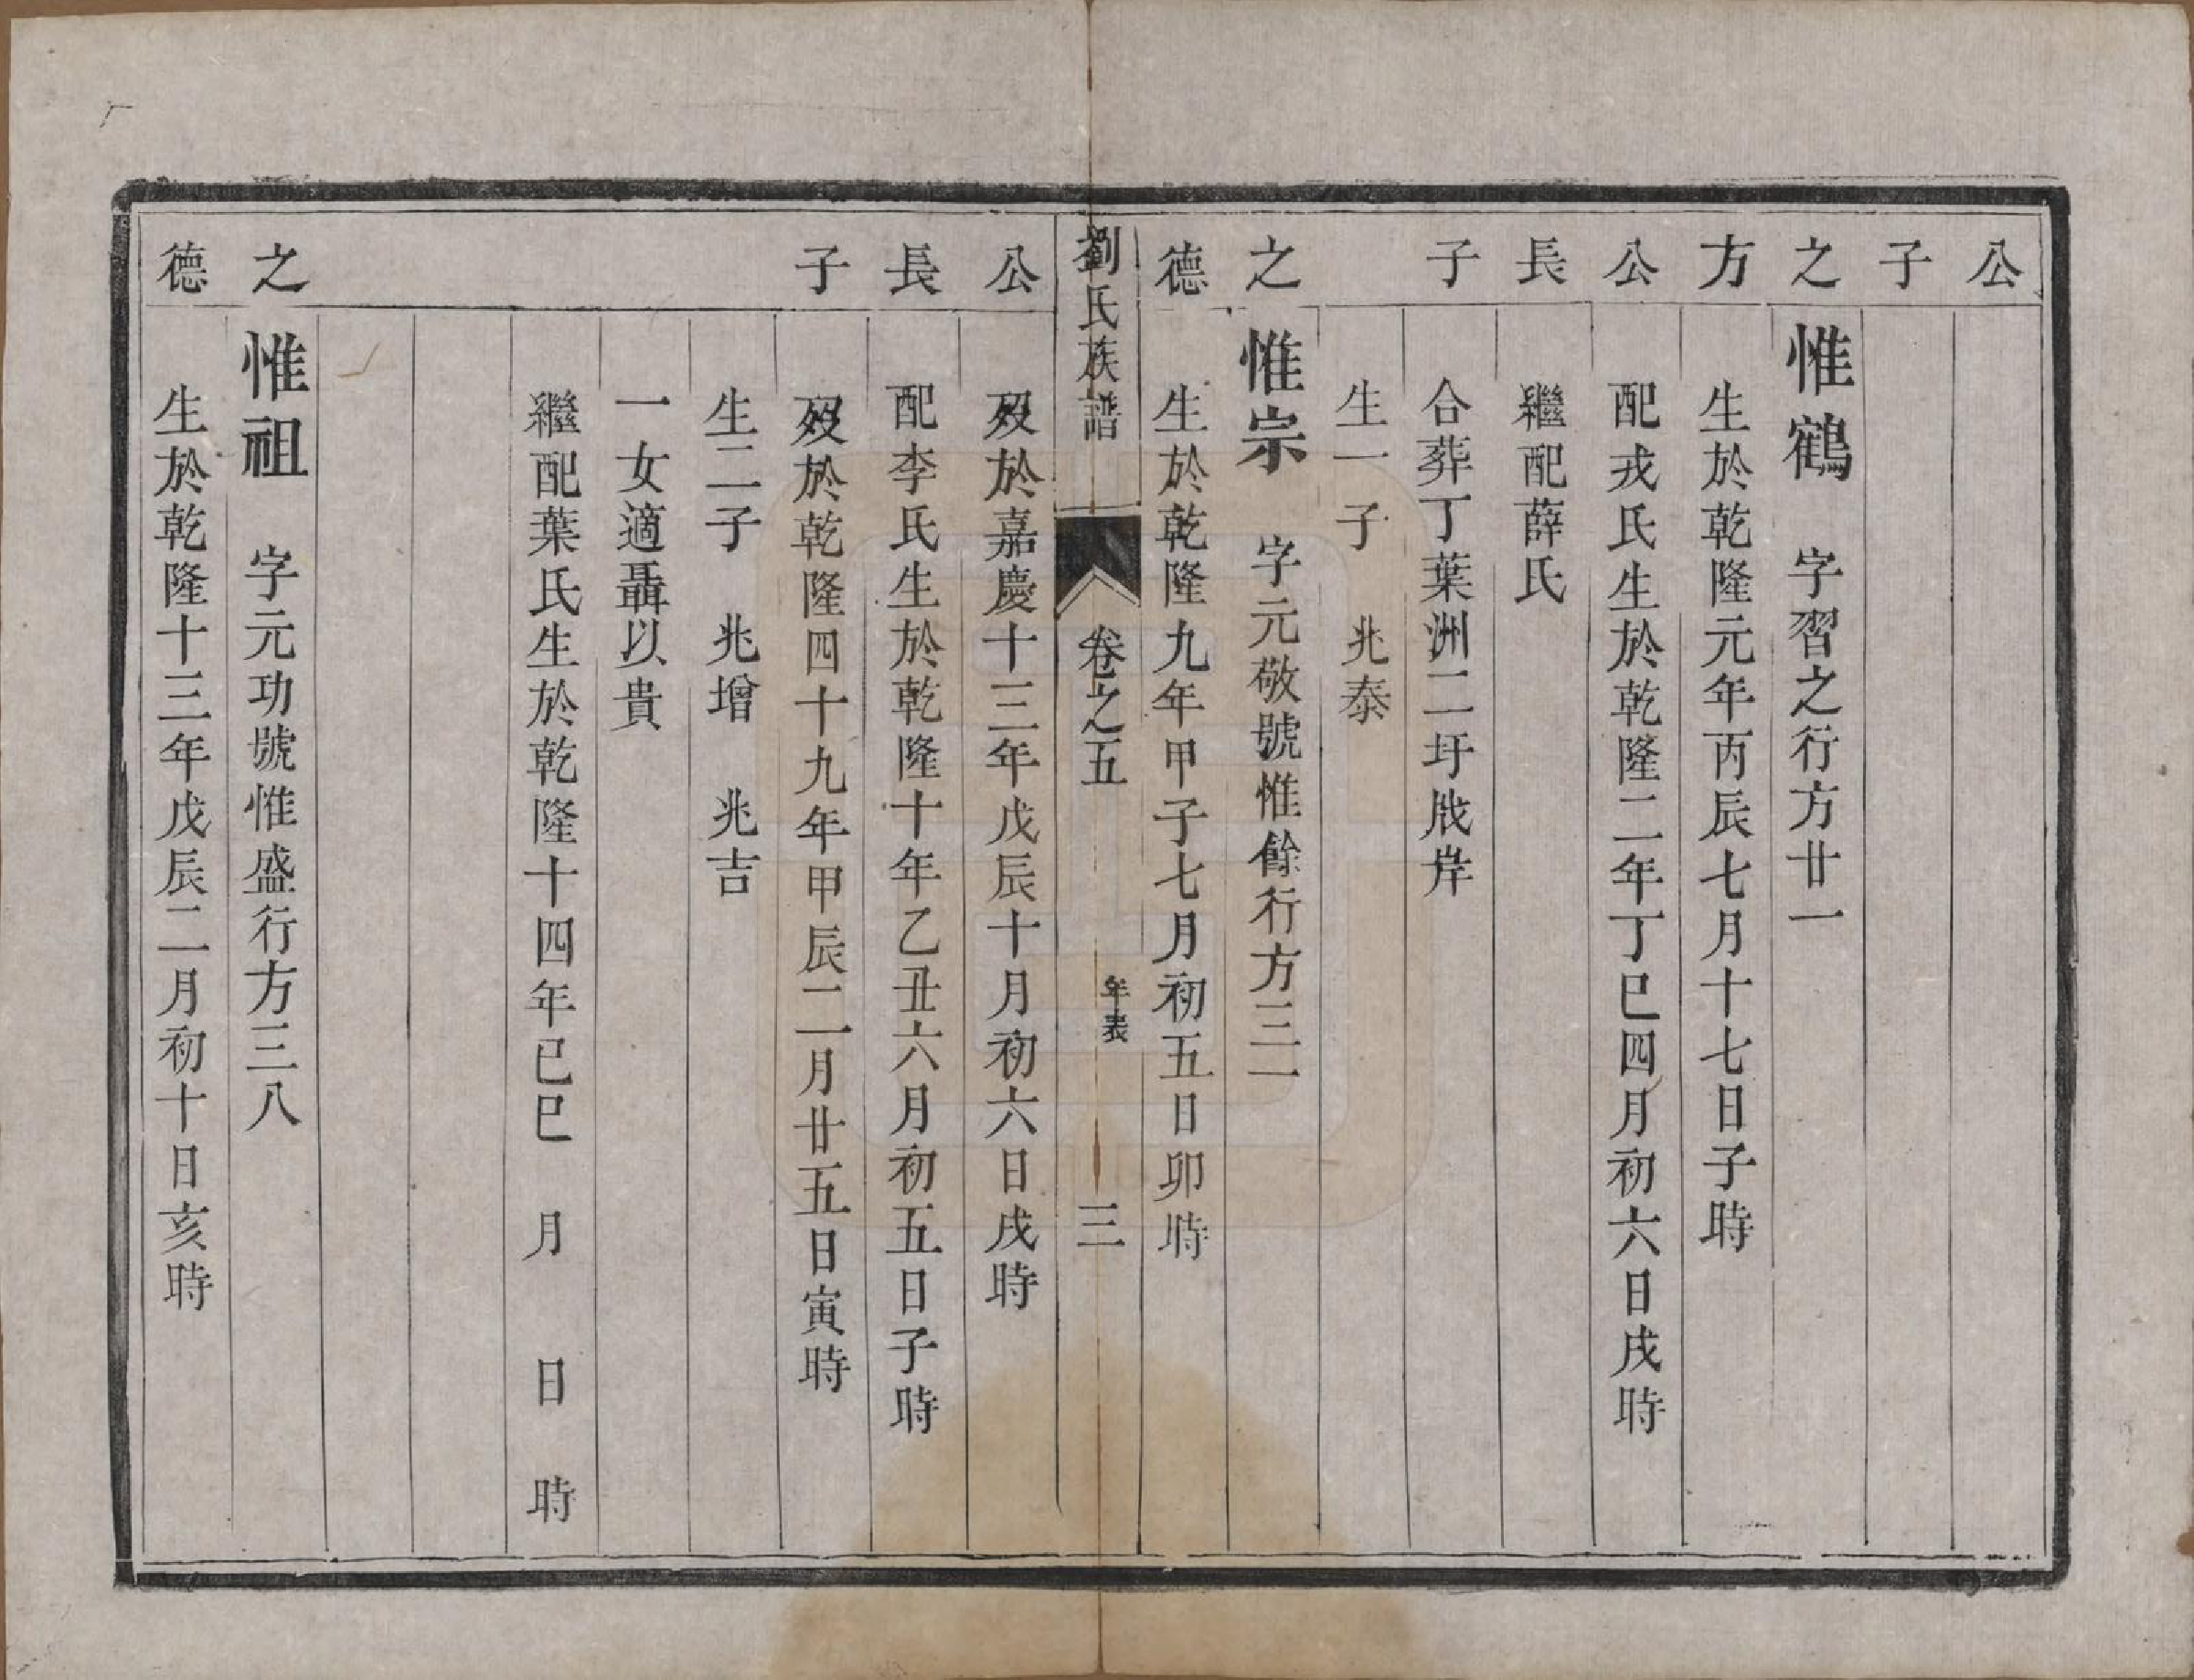 公
子
之 惟鶴 字習之行方廿一
方 生於乾隆元年丙辰七月十七日子時
公 配戎氏生於乾隆二年丁巳四月初六日戌時
長 繼配薛氏
子 合葬丁葉洲二圩戙岸
生一子 兆泰
之 惟宗 字元敬號惟餘行方三一
德 生於乾隆九年甲子七月初五日卯時
劉氏族譜 卷之五 年表 三
公 歿於嘉慶十三年戊辰十月初六日戌時
長 配李氏生於乾隆十年乙丑六月初五日子時
子 歿於乾隆四十九年甲辰二月廿五日寅時
生二子 兆增 兆吉
一女適聶以貴
繼配葉氏生於乾隆十四年己巳 月 日 時
之 惟祖 字元功號惟盛行方三八
德 生於乾隆十三年戊辰二月初十日亥時